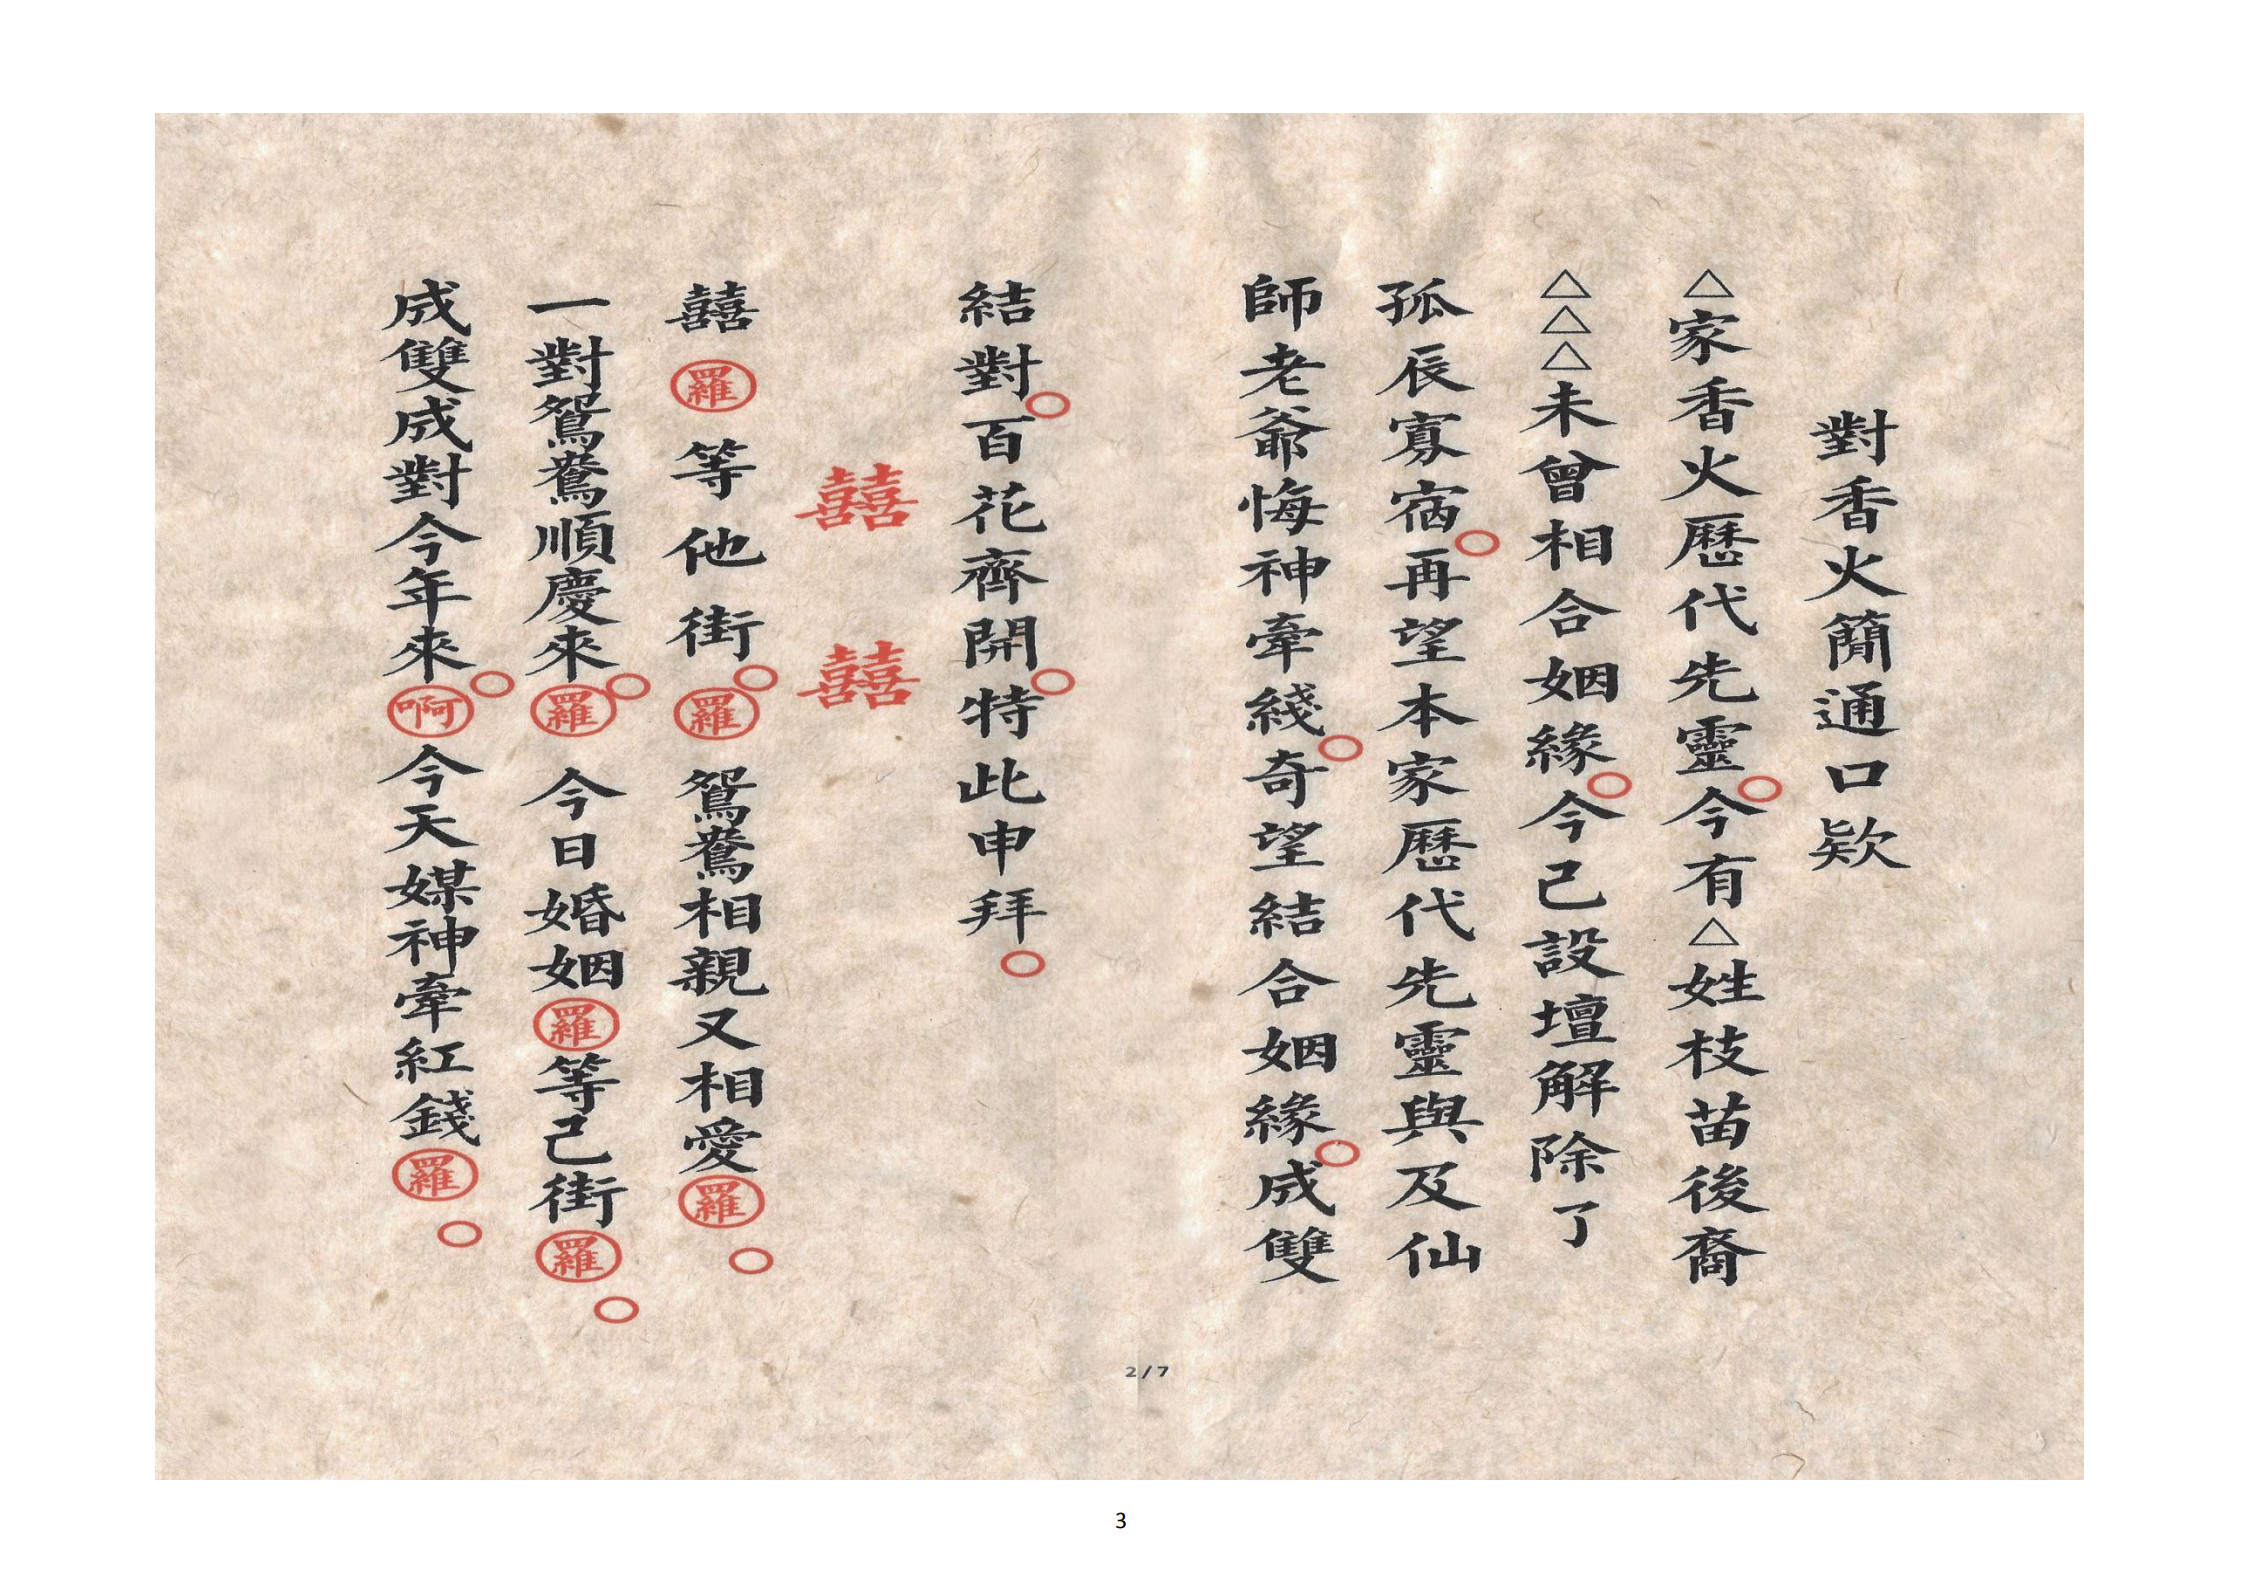 對香火簡通口欵
△家香火歷代先靈○今有△姓枝苗後裔
△△△未曾相合姻緣○今己設壇解除了
孤辰寡宿○再望本家歷代先靈與及仙
師老爺悔神牽綫○奇望結合姻緣○成雙
結對○百花齊開○特此申拜○
囍 囍
囍羅等他街○羅鴛鴦相親又相愛羅○
一對鴛鴦順慶來○羅今日婚姻羅等己街羅○
成雙成對今年來○啊今天媒神牽紅錢羅○
2/7
3